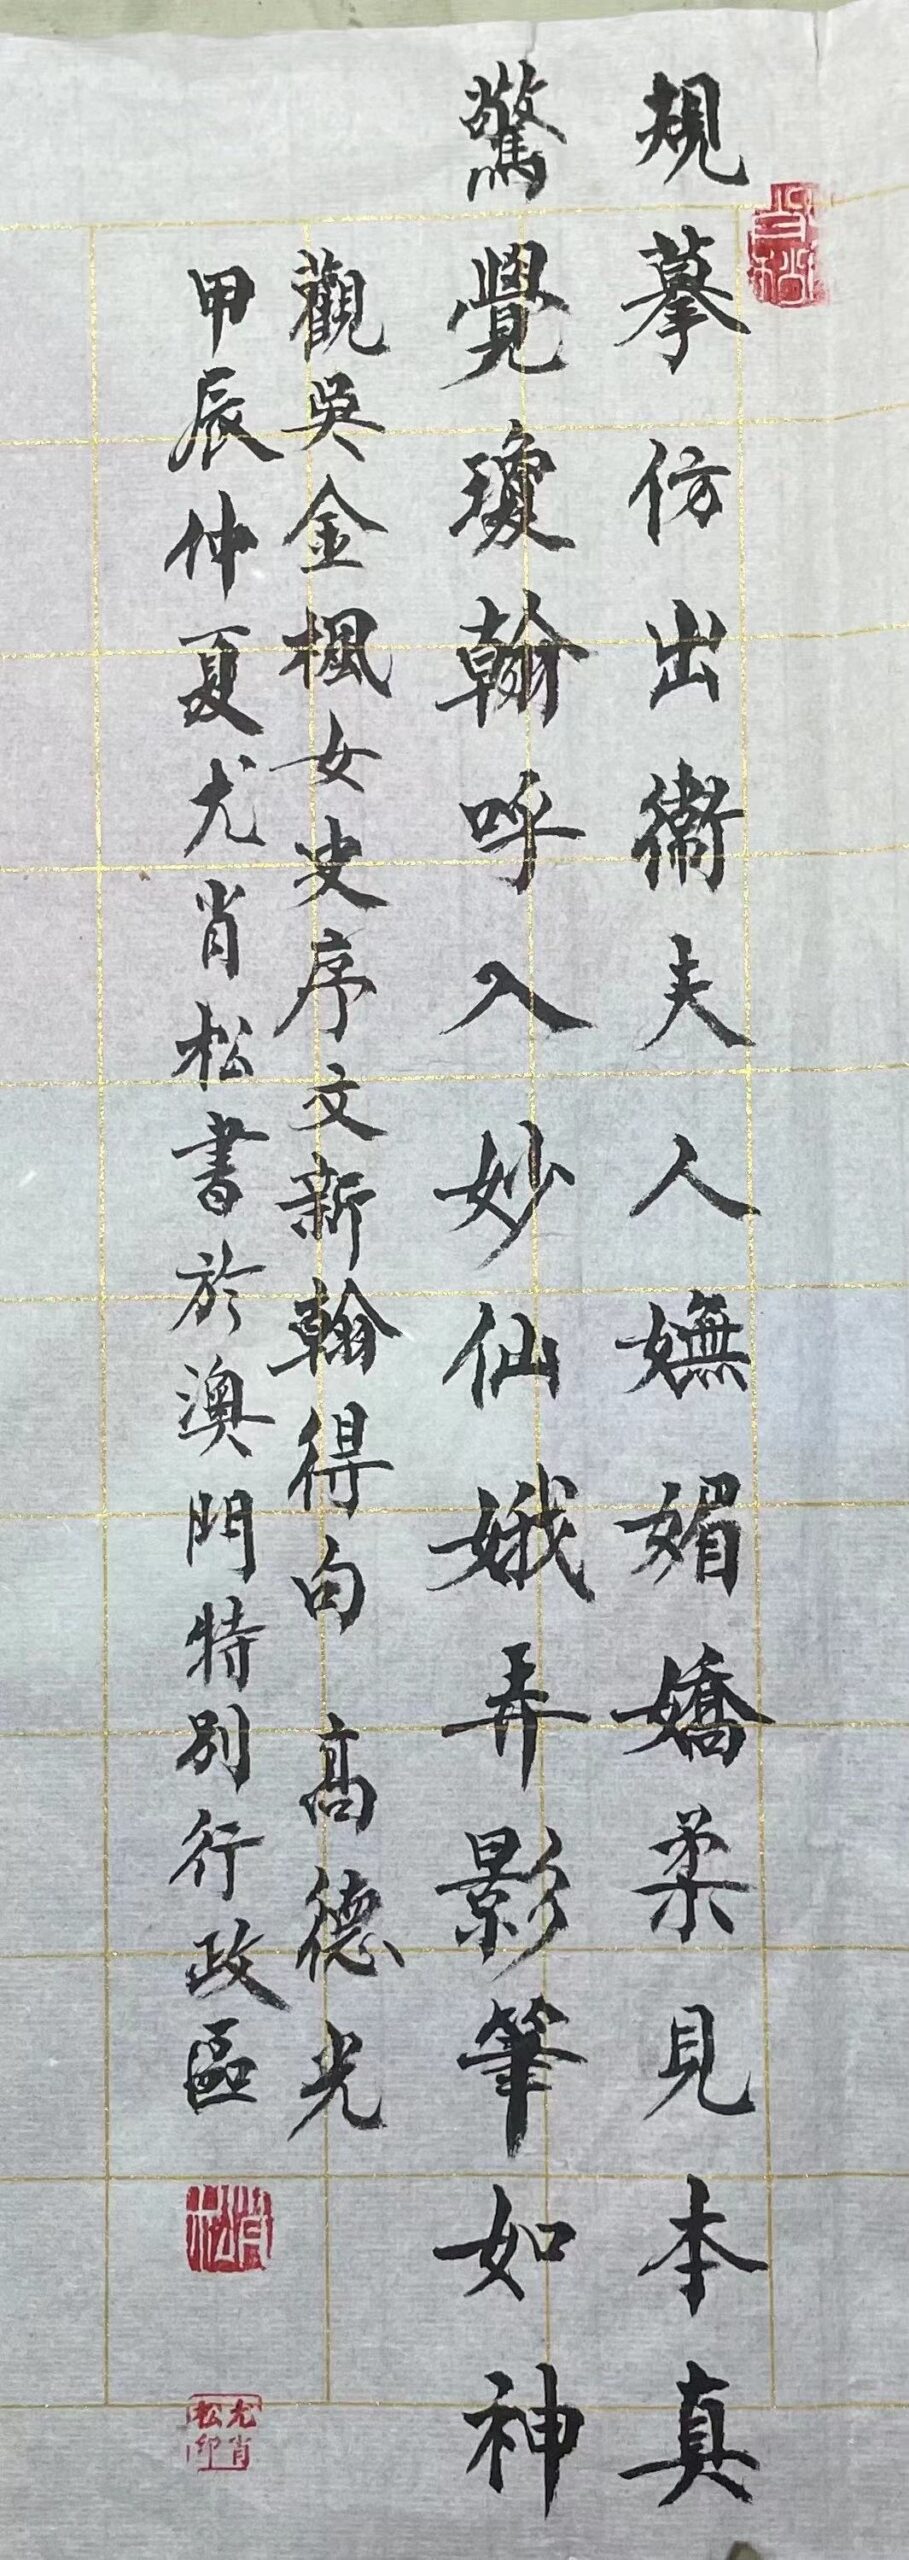 規摹仿出衛夫人嫵媚嬌柔見本真
驚覺瓊翰呼入妙仙娥弄影筆如神
觀吳金楓女史序文新翰得句 高德光
甲辰仲夏尤肖松書於澳門特別行政區
肖松
尤肖松印